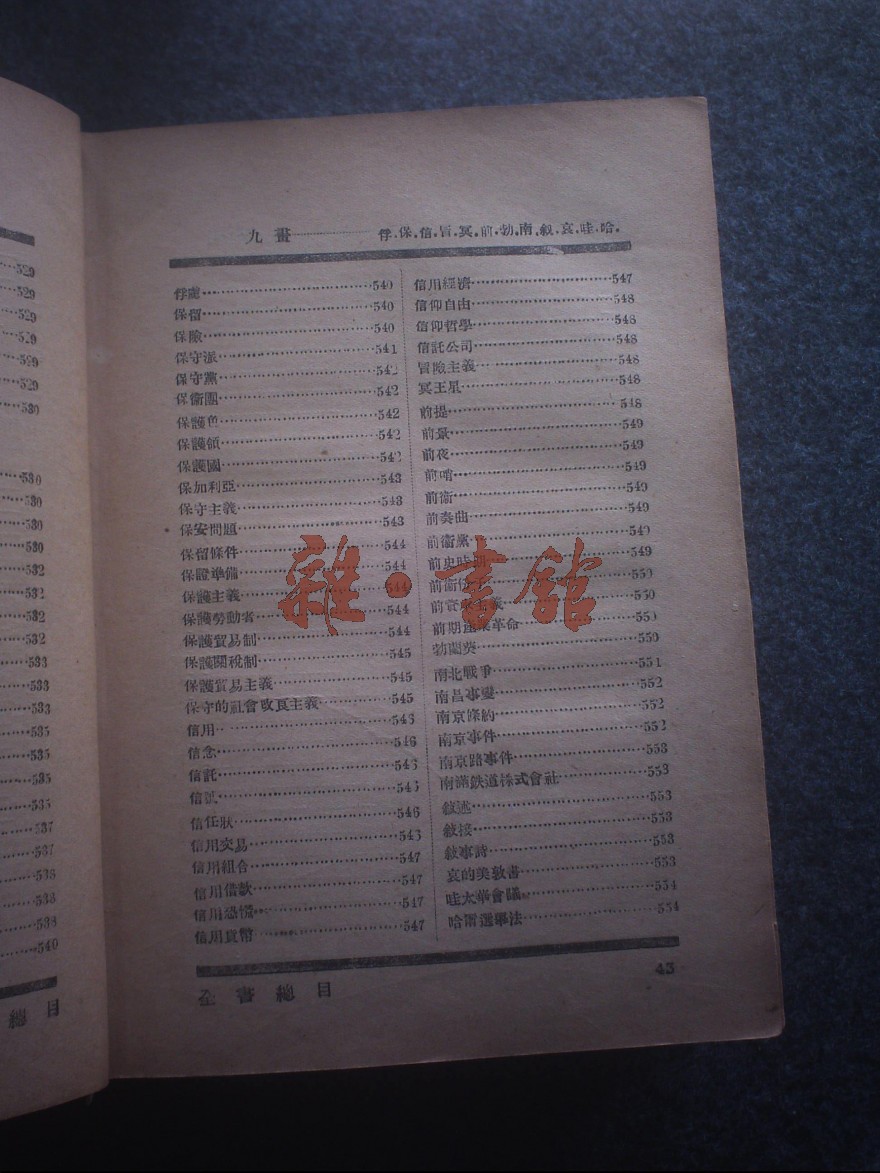 529
529
529
529
529
529
530
530
530
530
530
532
532
532
532
533
533
533
535
535
535
535
537
537
538
538
538
540
總 目
九畫 俘.保.信.冒.冥.前.勃.南.叙.哀.哇.哈.
俘虜 540
保留 540
保險 540
保守派 541
保守黨 542
保衛團 542
保護色 542
保護領 542
保護國 542
保加利亞 543
保守主義 543
保安問題 543
保留條件 544
保證準備 544
保護主義 544
保護勞動者 544
保護貿易制 544
保護關稅制 545
保護貿易主義 545
保守的社會改良主義 545
信用 546
信念 546
信託 546
信號 546
信任狀 546
信用交易 546
信用組合 547
信用借款 547
信用恐慌 547
信用貨幣 547
信用經濟 547
信仰自由 548
信仰哲學 548
信託公司 548
冒險主義 548
冥王星 548
前提 548
前景 549
前夜 549
前哨 549
前衛 549
前奏曲 549
前衛黨 549
前史時期 549
550
550
前期 革命 550
勃蘭克 550
南北戰爭 551
南昌事變 552
南京條約 552
南京事件 552
南京路事件 553
南滿鉄道株式會社 553
敍述 553
敍接 553
敍事詩 553
哀的美敦書 553
哇太華會議 554
哈爾選舉法 554
全書總目 43
雜·書館